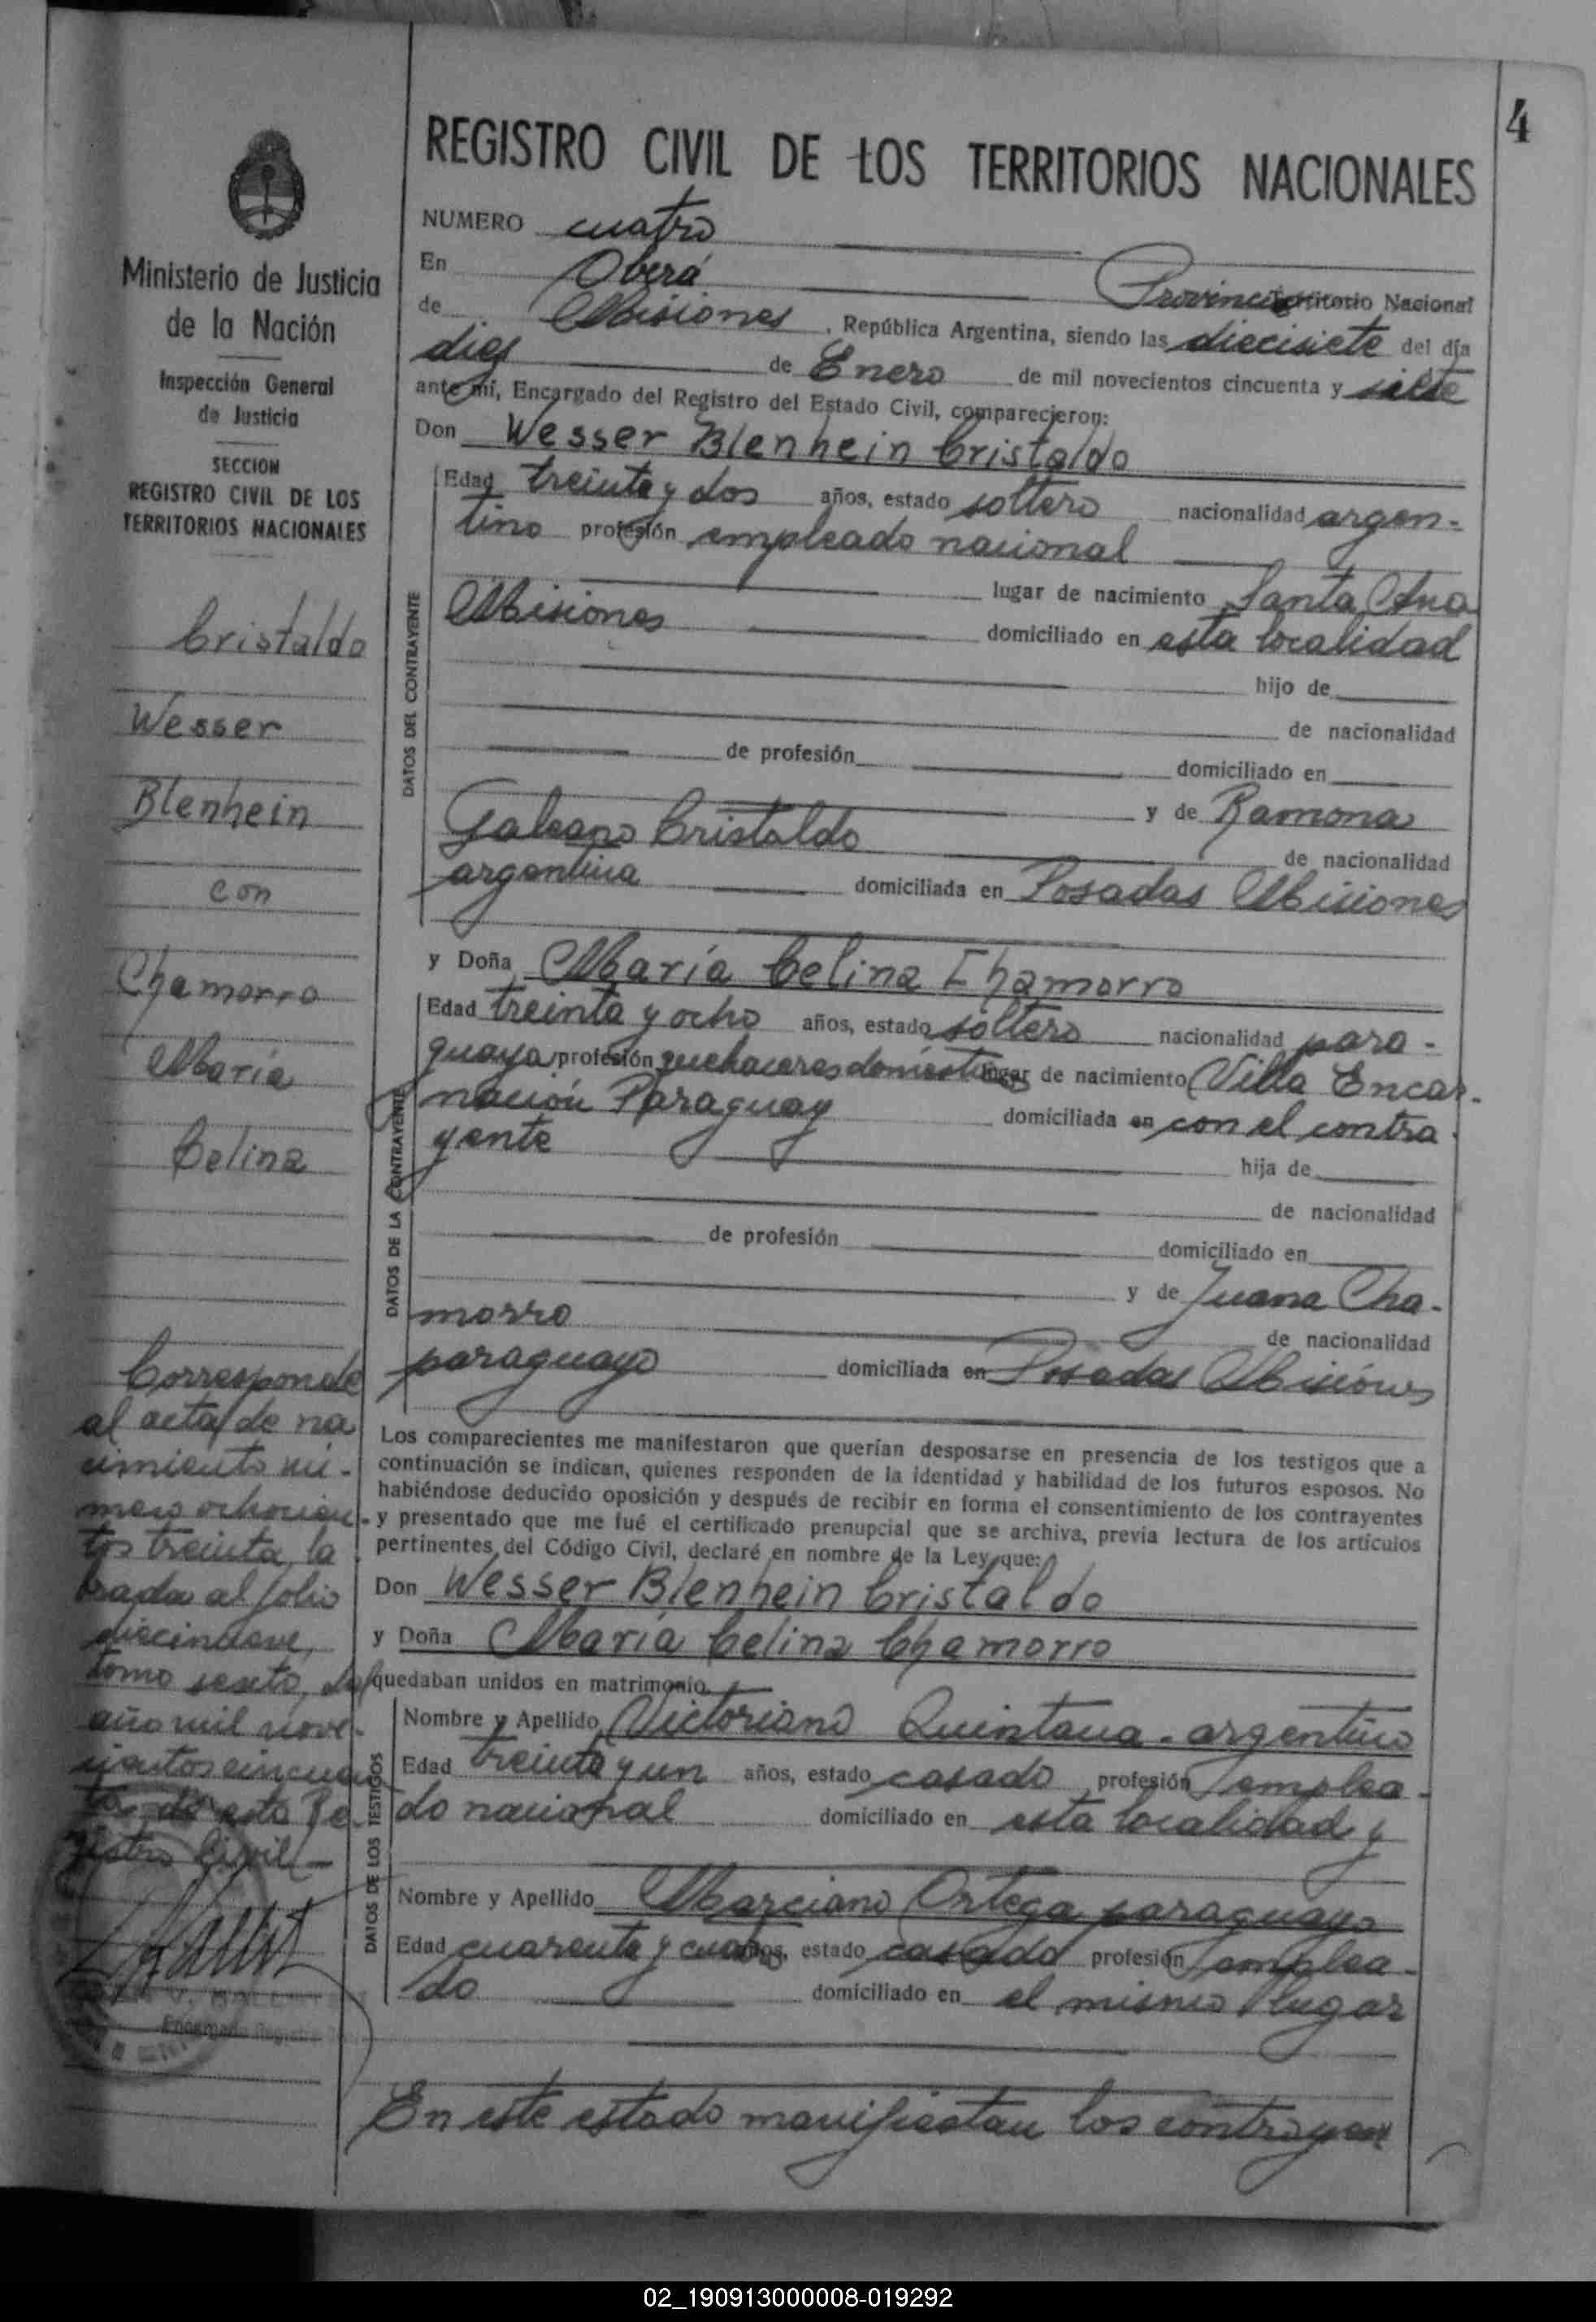 4
REGISTRO CIVIL DE LOS TERRITORIOS NACIONALES
Ministerio de Justicia
de la Nación
Inspección General
de Justicia
SECCION
REGISTRO CIVIL DE LOS
TERRITORIOS NACIONALES
Cristaldo
Wesser
Blenhein
con
Chamorro
María
Celina
Corresponde
al acta de na
cimiento nú-
mero ochocien-
tos treinta, la
brada al folio
diecinueve,
tomo sexto, del
año mil nove-
cientos cincuen
ta de este Re-
gistro Civil
NUMERO cuatro
En Oberá Provincia Territorio Nacional
de Misiones, República Argentina, siendo las diecisiete del día
diez de Enero de mil novecientos cincuenta y siete
ante mí, Encargado del Registro del Estado Civil, comparecieron:
Don Wesser Blenhein Cristaldo
DATOS DEL CONTRAYENTE
Edad treinta y dos años, estado soltero nacionalidad argen-
tino profesión empleado nacional
lugar de nacimiento Santa Ana
Misiones domiciliado en esta localidad
hijo de
de nacionalidad
de profesión domiciliado en
y de Ramona
Galeano Cristaldo de nacionalidad
argentina domiciliada en Posadas Misiones
y Doña María Celina Chamorro
DATOS DE LA CONTRAYENTE
Edad treinta y ocho años, estado soltera nacionalidad para-
guaya profesión quehaceres domésticos lugar de nacimiento Villa Encar-
nación Paraguay domiciliada en con el contra
yente hija de
de nacionalidad
de profesión domiciliado en
y de Juana Cha-
morro de nacionalidad
paraguaya domiciliada en Posadas Misiones
Los comparecientes me manifestaron que querían desposarse en presencia de los testigos que a
continuación se indican, quienes responden de la identidad y habilidad de los futuros esposos. No
habiéndose deducido oposición y después de recibir en forma el consentimiento de los contrayentes
y presentado que me fué el certificado prenupcial que se archiva, previa lectura de los artículos
pertinentes del Código Civil, declaré en nombre de la Ley que:
Don Wesser Blenhein Cristaldo
y Doña María Celina Chamorro
quedaban unidos en matrimonio.
DATOS DE LOS TESTIGOS
Nombre y Apellido Victoriano Quintana - argentino
Edad treinta y un años, estado casado profesión emplea-
do nacional domiciliado en esta localidad y
Nombre y Apellido Marciano Ortega paraguayo
Edad cuarenta y cuatro años, estado casado profesión emplea-
do domiciliado en el mismo lugar
En este estado manifiestan los contrayen
02_190913000008-019292